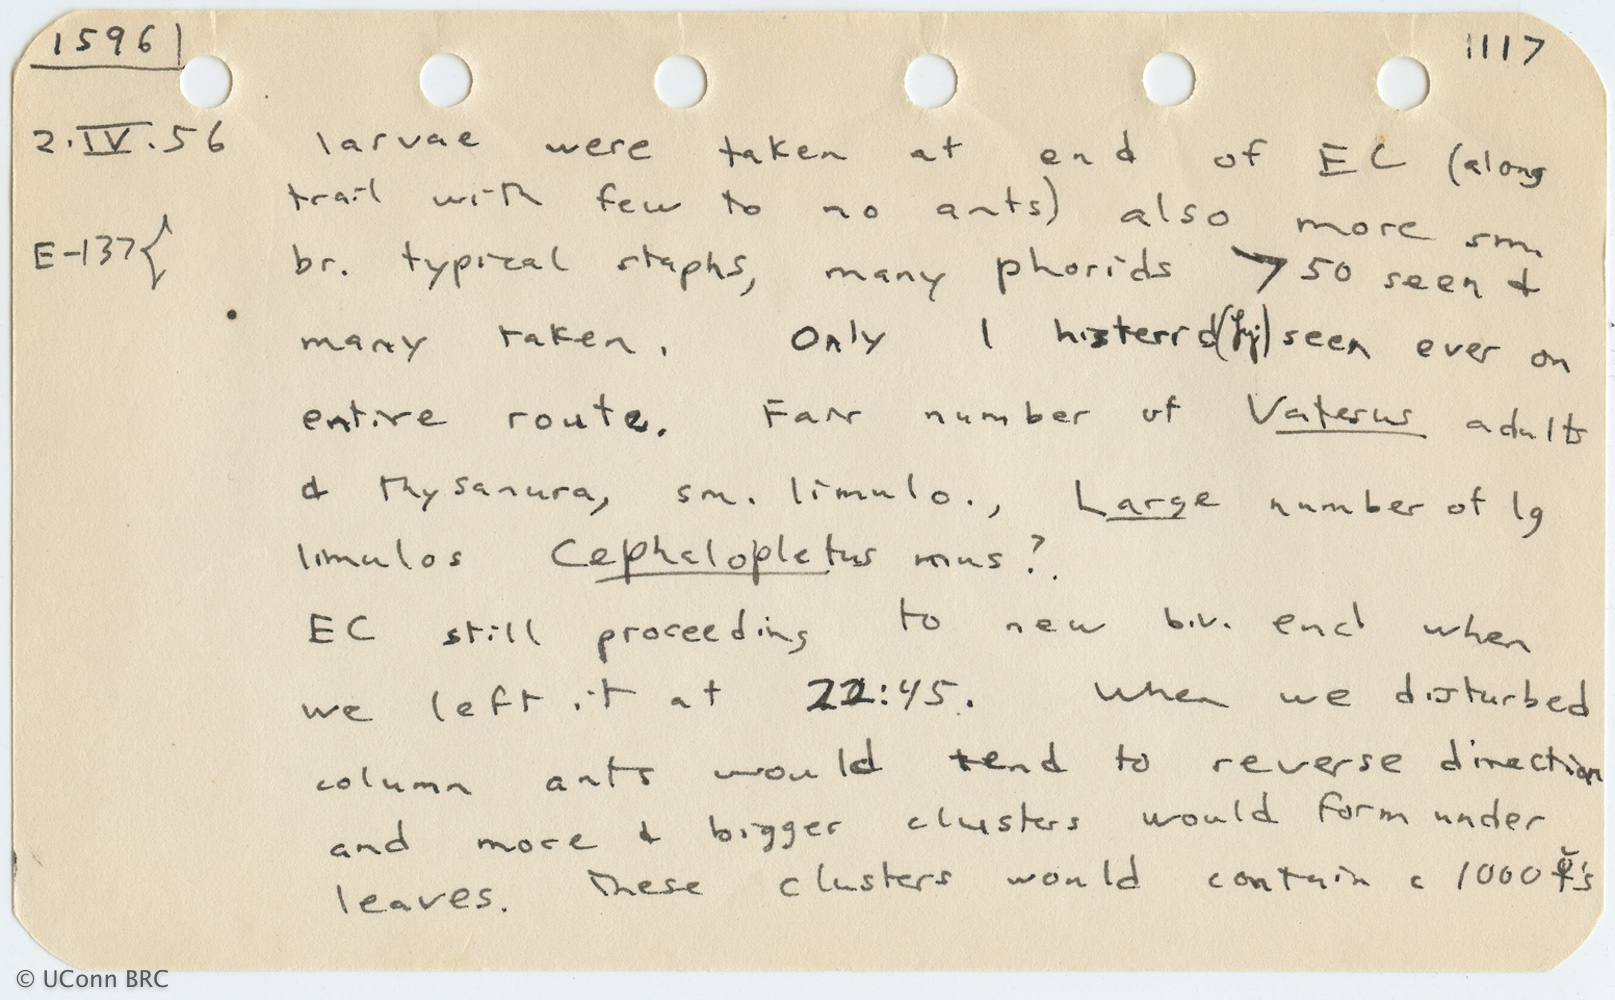 1596 1117
2.IV.56 larvae were taken at end of EC (along
trail with few to no ants) also more sm.
E-137{ br. typical staphs, many phorids >50 seen &
many taken. Only 1 histerid seen ever on
entire route. Fair number of Vatesus adults
& thysanura, sm. limulo., Large number of lg
limulos Cephaloplectus mus?.
EC still proceeding to new biv. end when
we left it at 22:45. When we disturbed
column ants would tend to reverse direction
and more & bigger clusters would form under
leaves. These clusters would contain c 1000 ☿'s
© UConn BRC